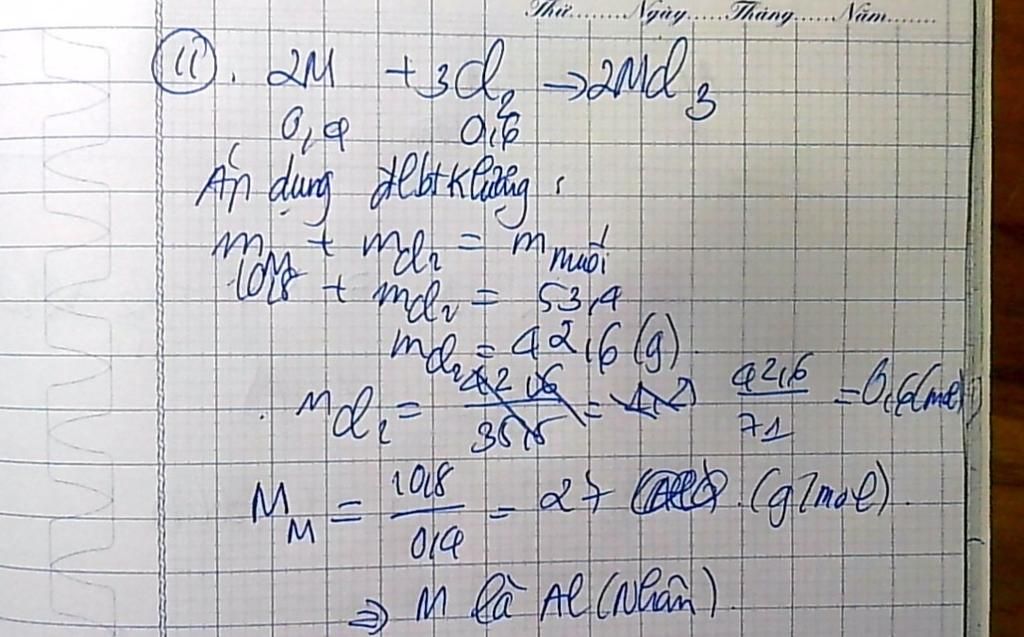 Thứ........Ngày......Tháng......Năm........
11. 2M + 3Cl2 → 2MCl3
0,4 0,6
Áp dụng đlbtKlượng:
mM + mCl2 = mmuối
10,8 + mCl2 = 53,4
mCl2 = 42,6 (g)
nCl2 = 42,6/35,5 = 1,2 42,6/71 = 0,6 (mol)
MM = 10,8/0,4 = 27 (g/mol).
⇒ M là Al (Nhận).